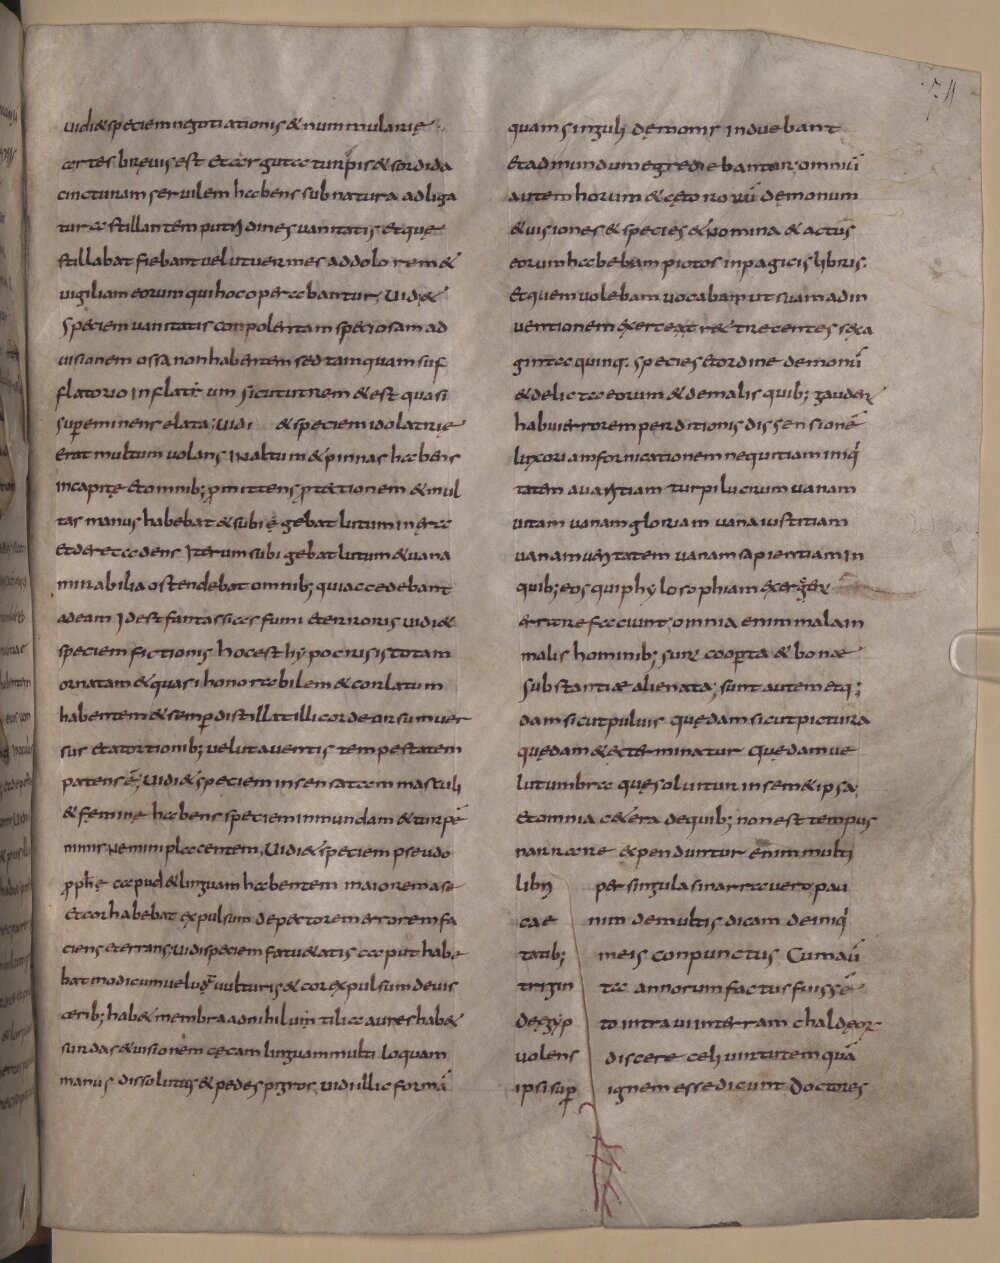 uidi & speciem negotiationis & nummularię
cortes breuis est et cor guttoturpis & sordida
cincturam seruilem habens sub natura adliga
tur & stillantem putridines uanitatis et quę
stillabat fiebant uelut uermes ad dolorem &
uigiliam eorum qui hoc operabantur, Uidi &
speciem uanitatis conpolentam speciosam ad
uisionem ossa non habentem sed tamquam suf
flatorio inflatum sicut utrem & est quasi
supeminens elata; Uidi & speciem idolatrię
erat multum uolans in altum & pinnas habens
in capite et omnib; pmittens ptectionem & mul
tas manus habebat & subigebat lutum in
Iterum subigebat lutum & uana
mirabilia ostendebat omnib; qui accedebant
ad eam idest fantassias fumi et erroris uidi &
speciem fictionis hoc est hypocrisis totam
ornatam & quasi honorabilem & conlatum
habentem & semp distillat illi cor deorsum uer
sus et a tortionib; uelut a uentis tempestatem
patens ē; Uidi & speciem insensatam masculi
& femine habens speciem inmundam & turpē
nimis nemini placentem, Uidi & speciem pseudo
caput & linguam habentem maiorem a se
et cor habebat expulsum de pectore merrorem fa
ciens et errans, Uidi speciem fatuitatis caput habe
bat modicum uulturis & cor expulsum deuis
cerib; hab& membra adnihilum tilia aures hab&
surdas & uisionem cęcam linguam multiloquam
manus dissolutas & pedes pigros, uidi illic formā
quam singuli demonis induebant
et ad mundum egrediebantur; omniū
autem horum & cętororū dęmonum
& uisiones & species & nomina & actus
eorum habebam pictos in pagicis libris.
Et quem uolebam uocabam ut suam adin
uentionem & trecentes sexa
ginta quinq. species & ordine demonū
& delicta eorum & de malis quib; gauden
habui errorem perditionis dissensionē
luxoriam fornicationem nequitiam iniq
tatem auaritiam turpilucrum uanam
uitam uanam gloriam uana iustitiam
uanam ueritatem uanam sapientiam in
quib; eos qui phylosophiam
errare faciunt, omnia enim mala in
malis hominib; sunt cooperta & bonae
substantiae alienata; sunt autem & q;
dam sicut puluis quędam sicut pictura
quędam & exterminatur quędam ue
lut umbra quę soluitur in sem&ipsa;
et omnia cetera de quib; non est tempus
narrare expenduntur enim multi
libri per singula si narrauero pau
cae nim de multis dicam de iniq
tatib; meis conpunctus Cum aū
triginta annorum factus fuissē
de egyp to intraui in terram chaldeor
uolens discere celi uirtutem quā
ipsi sup ignem esse dicunt Doctores